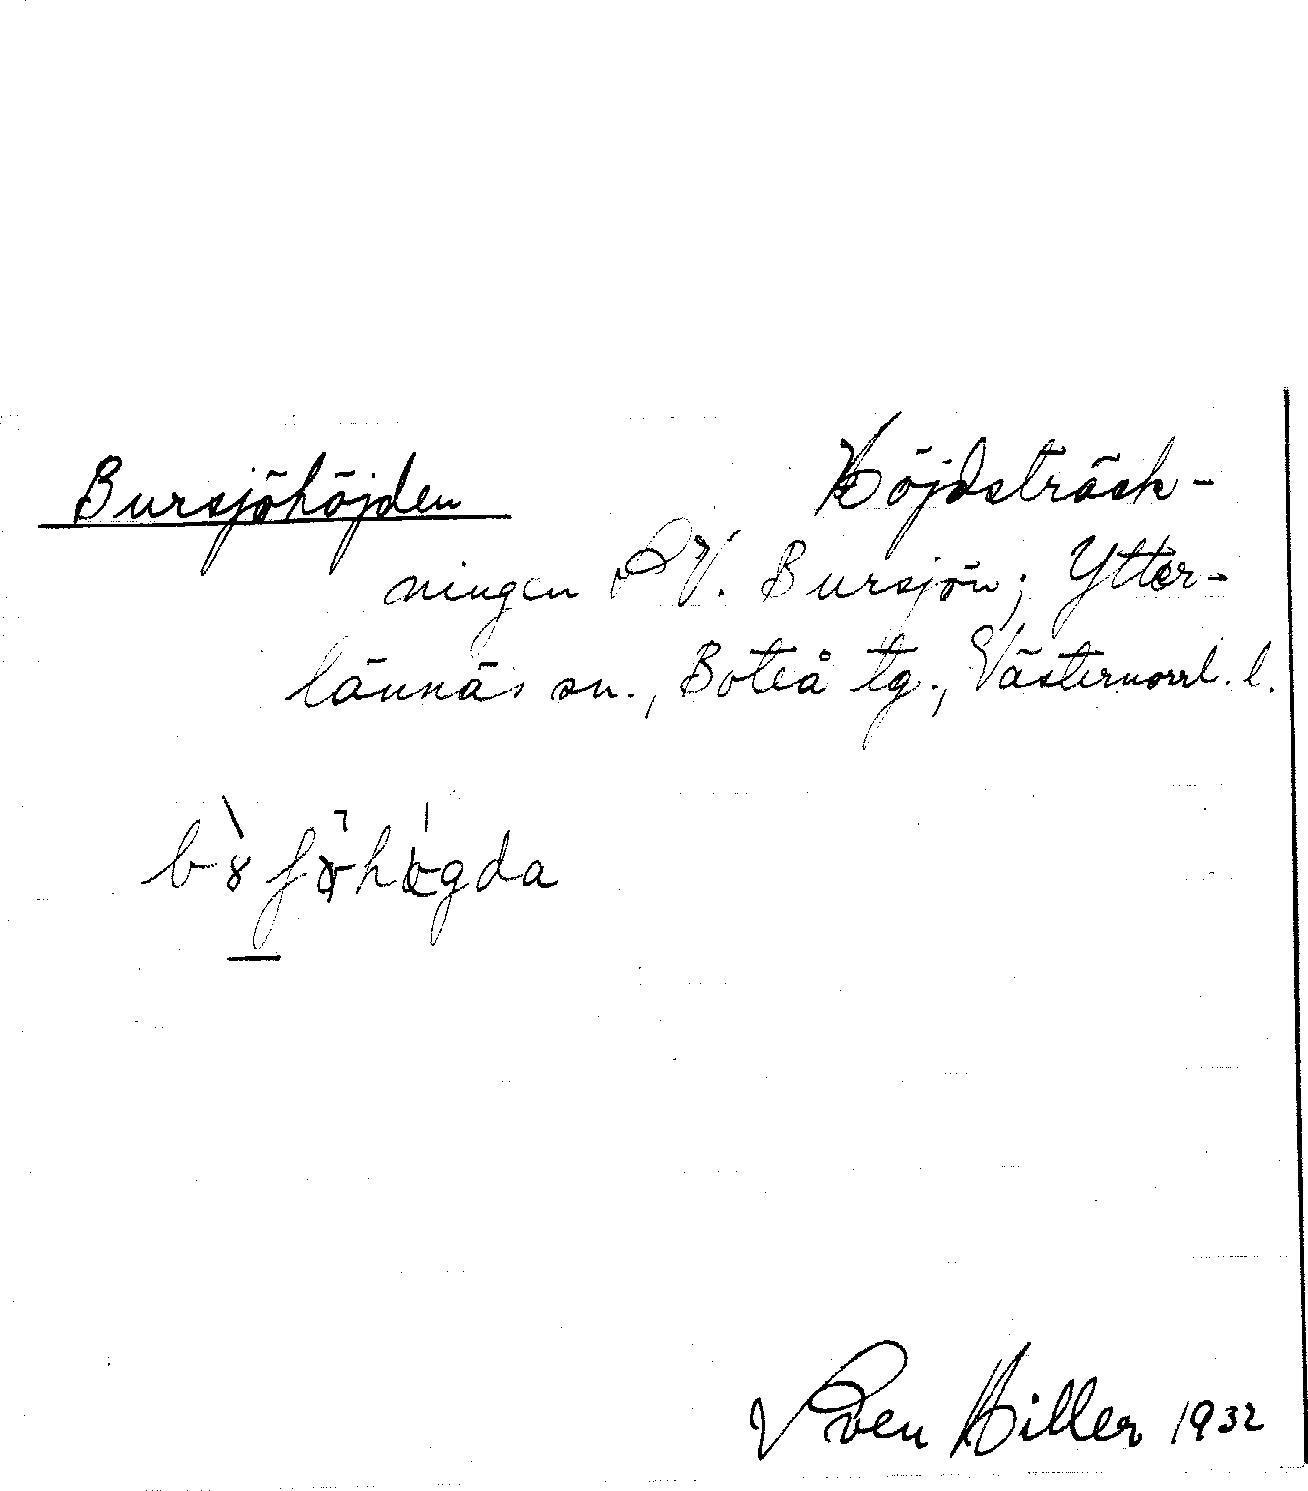 Bursjöhöjden Höjdsträck-
ningen SV. Bursjön; Ytter-
lännäs sn., Boteå tg., Västernorrl. l.
Sven Hiller 1932